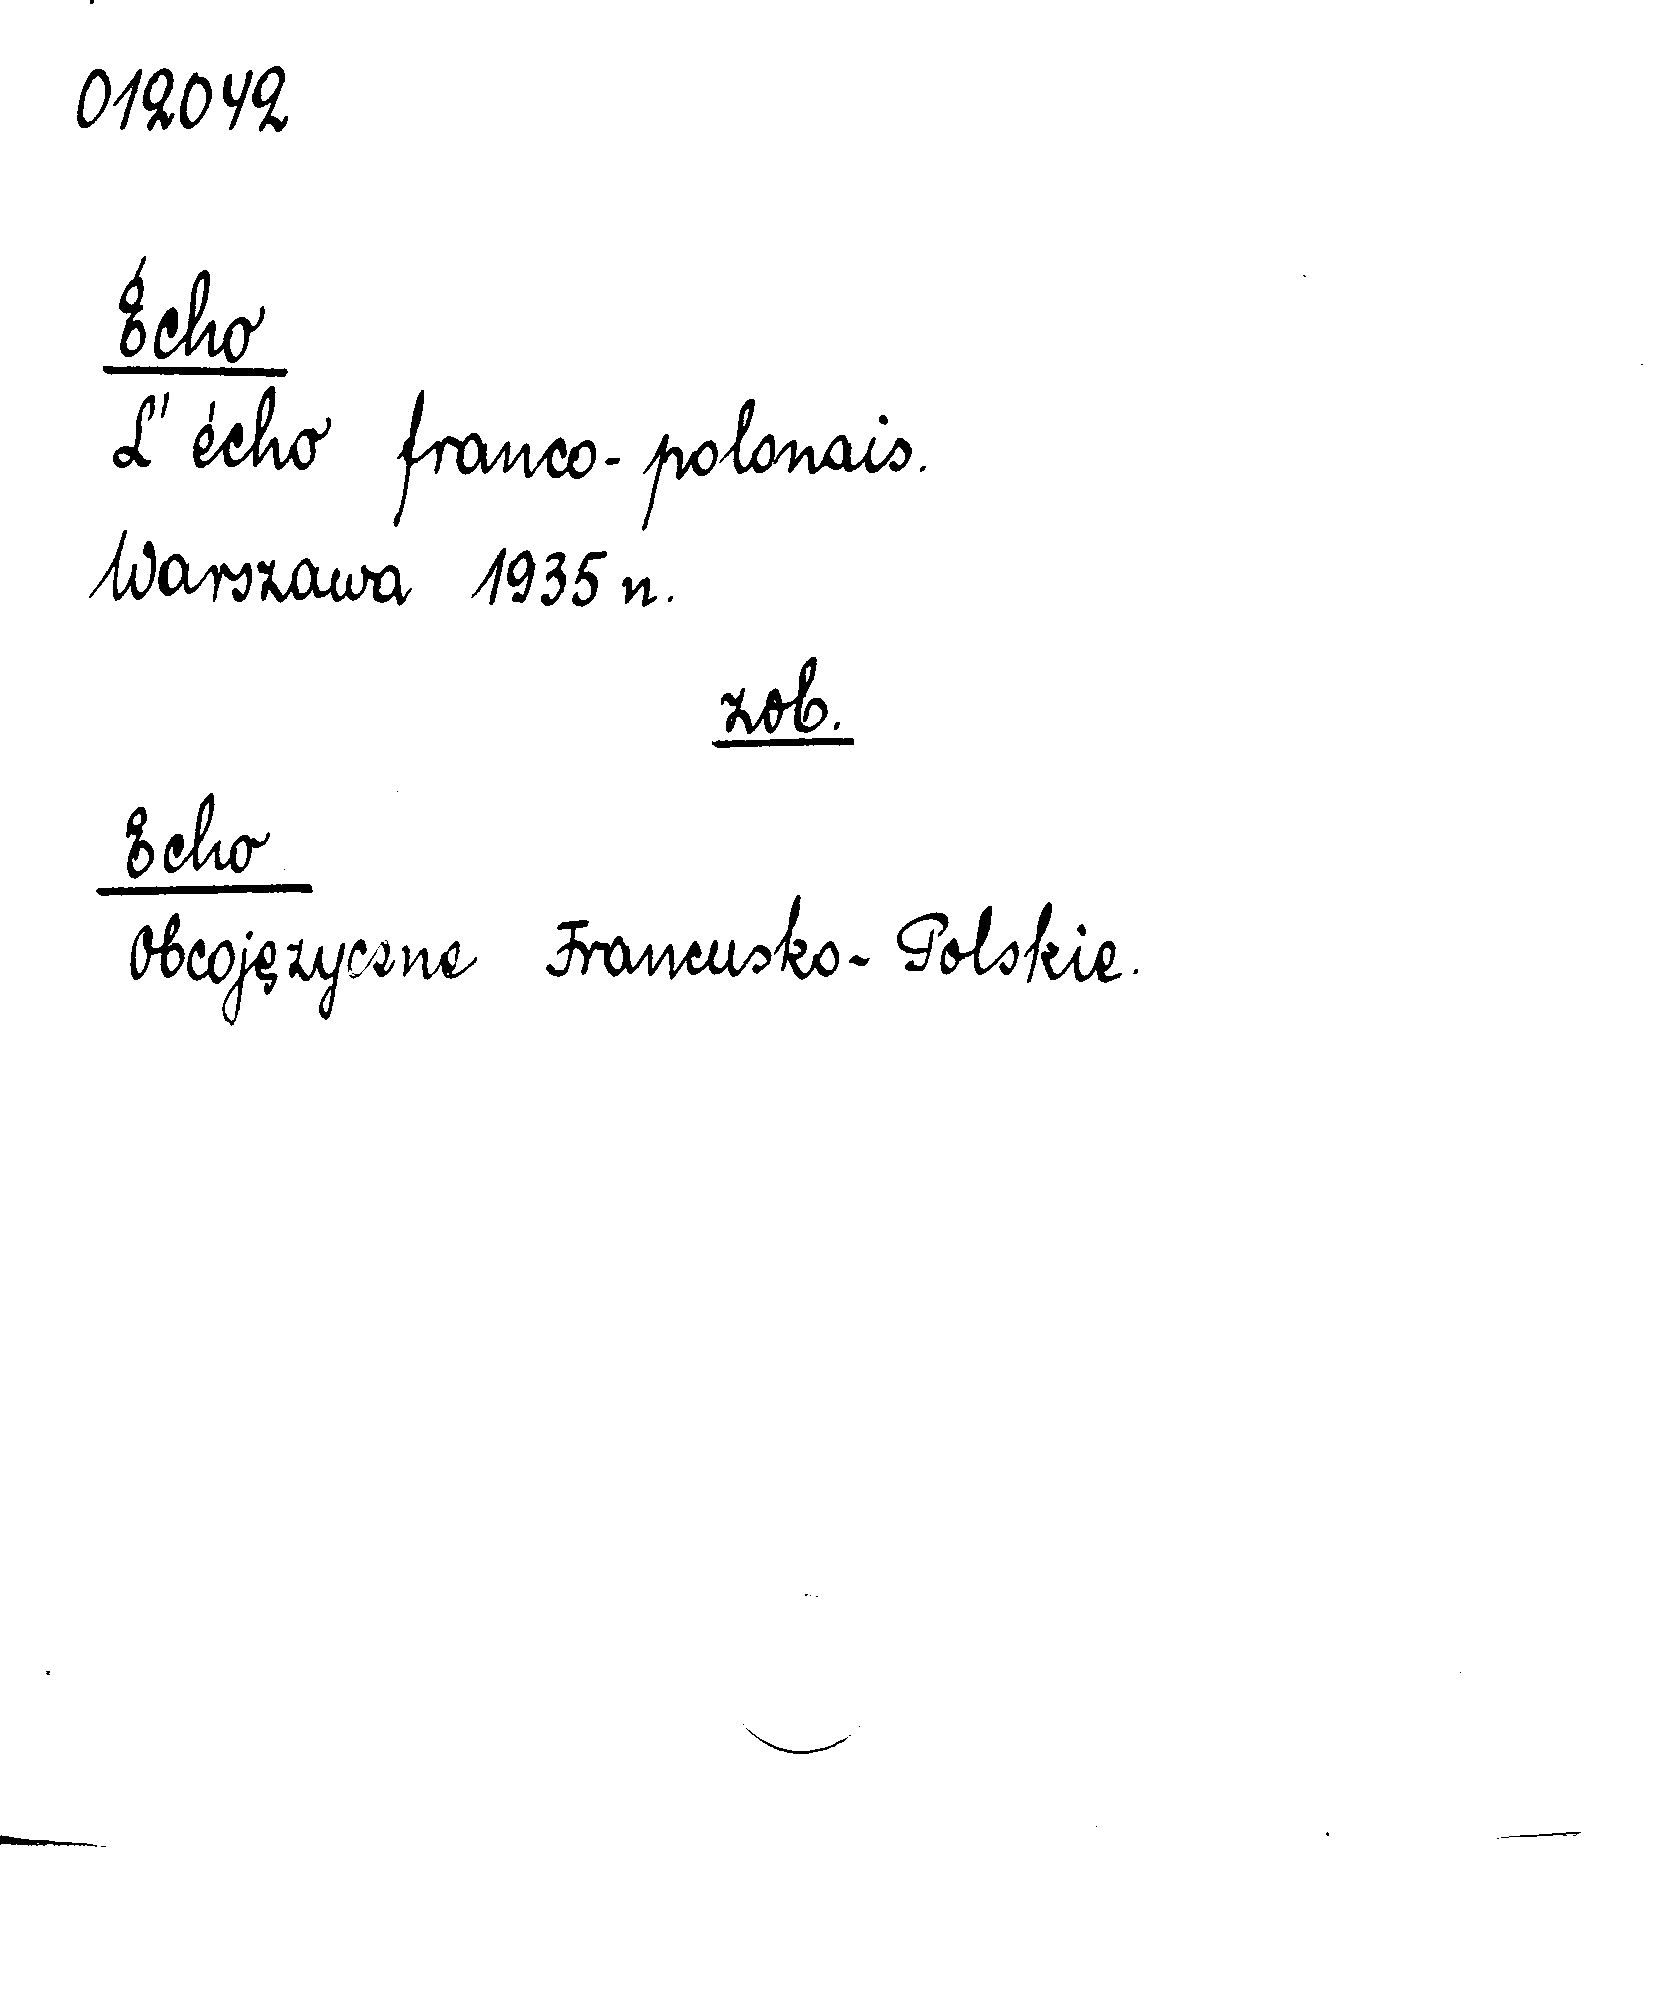 012042
Écho
L'écho franco-polonais.
Warszawa 1935 n.
zob.
Echo
Obcojęzyczne Francusko-Polskie.